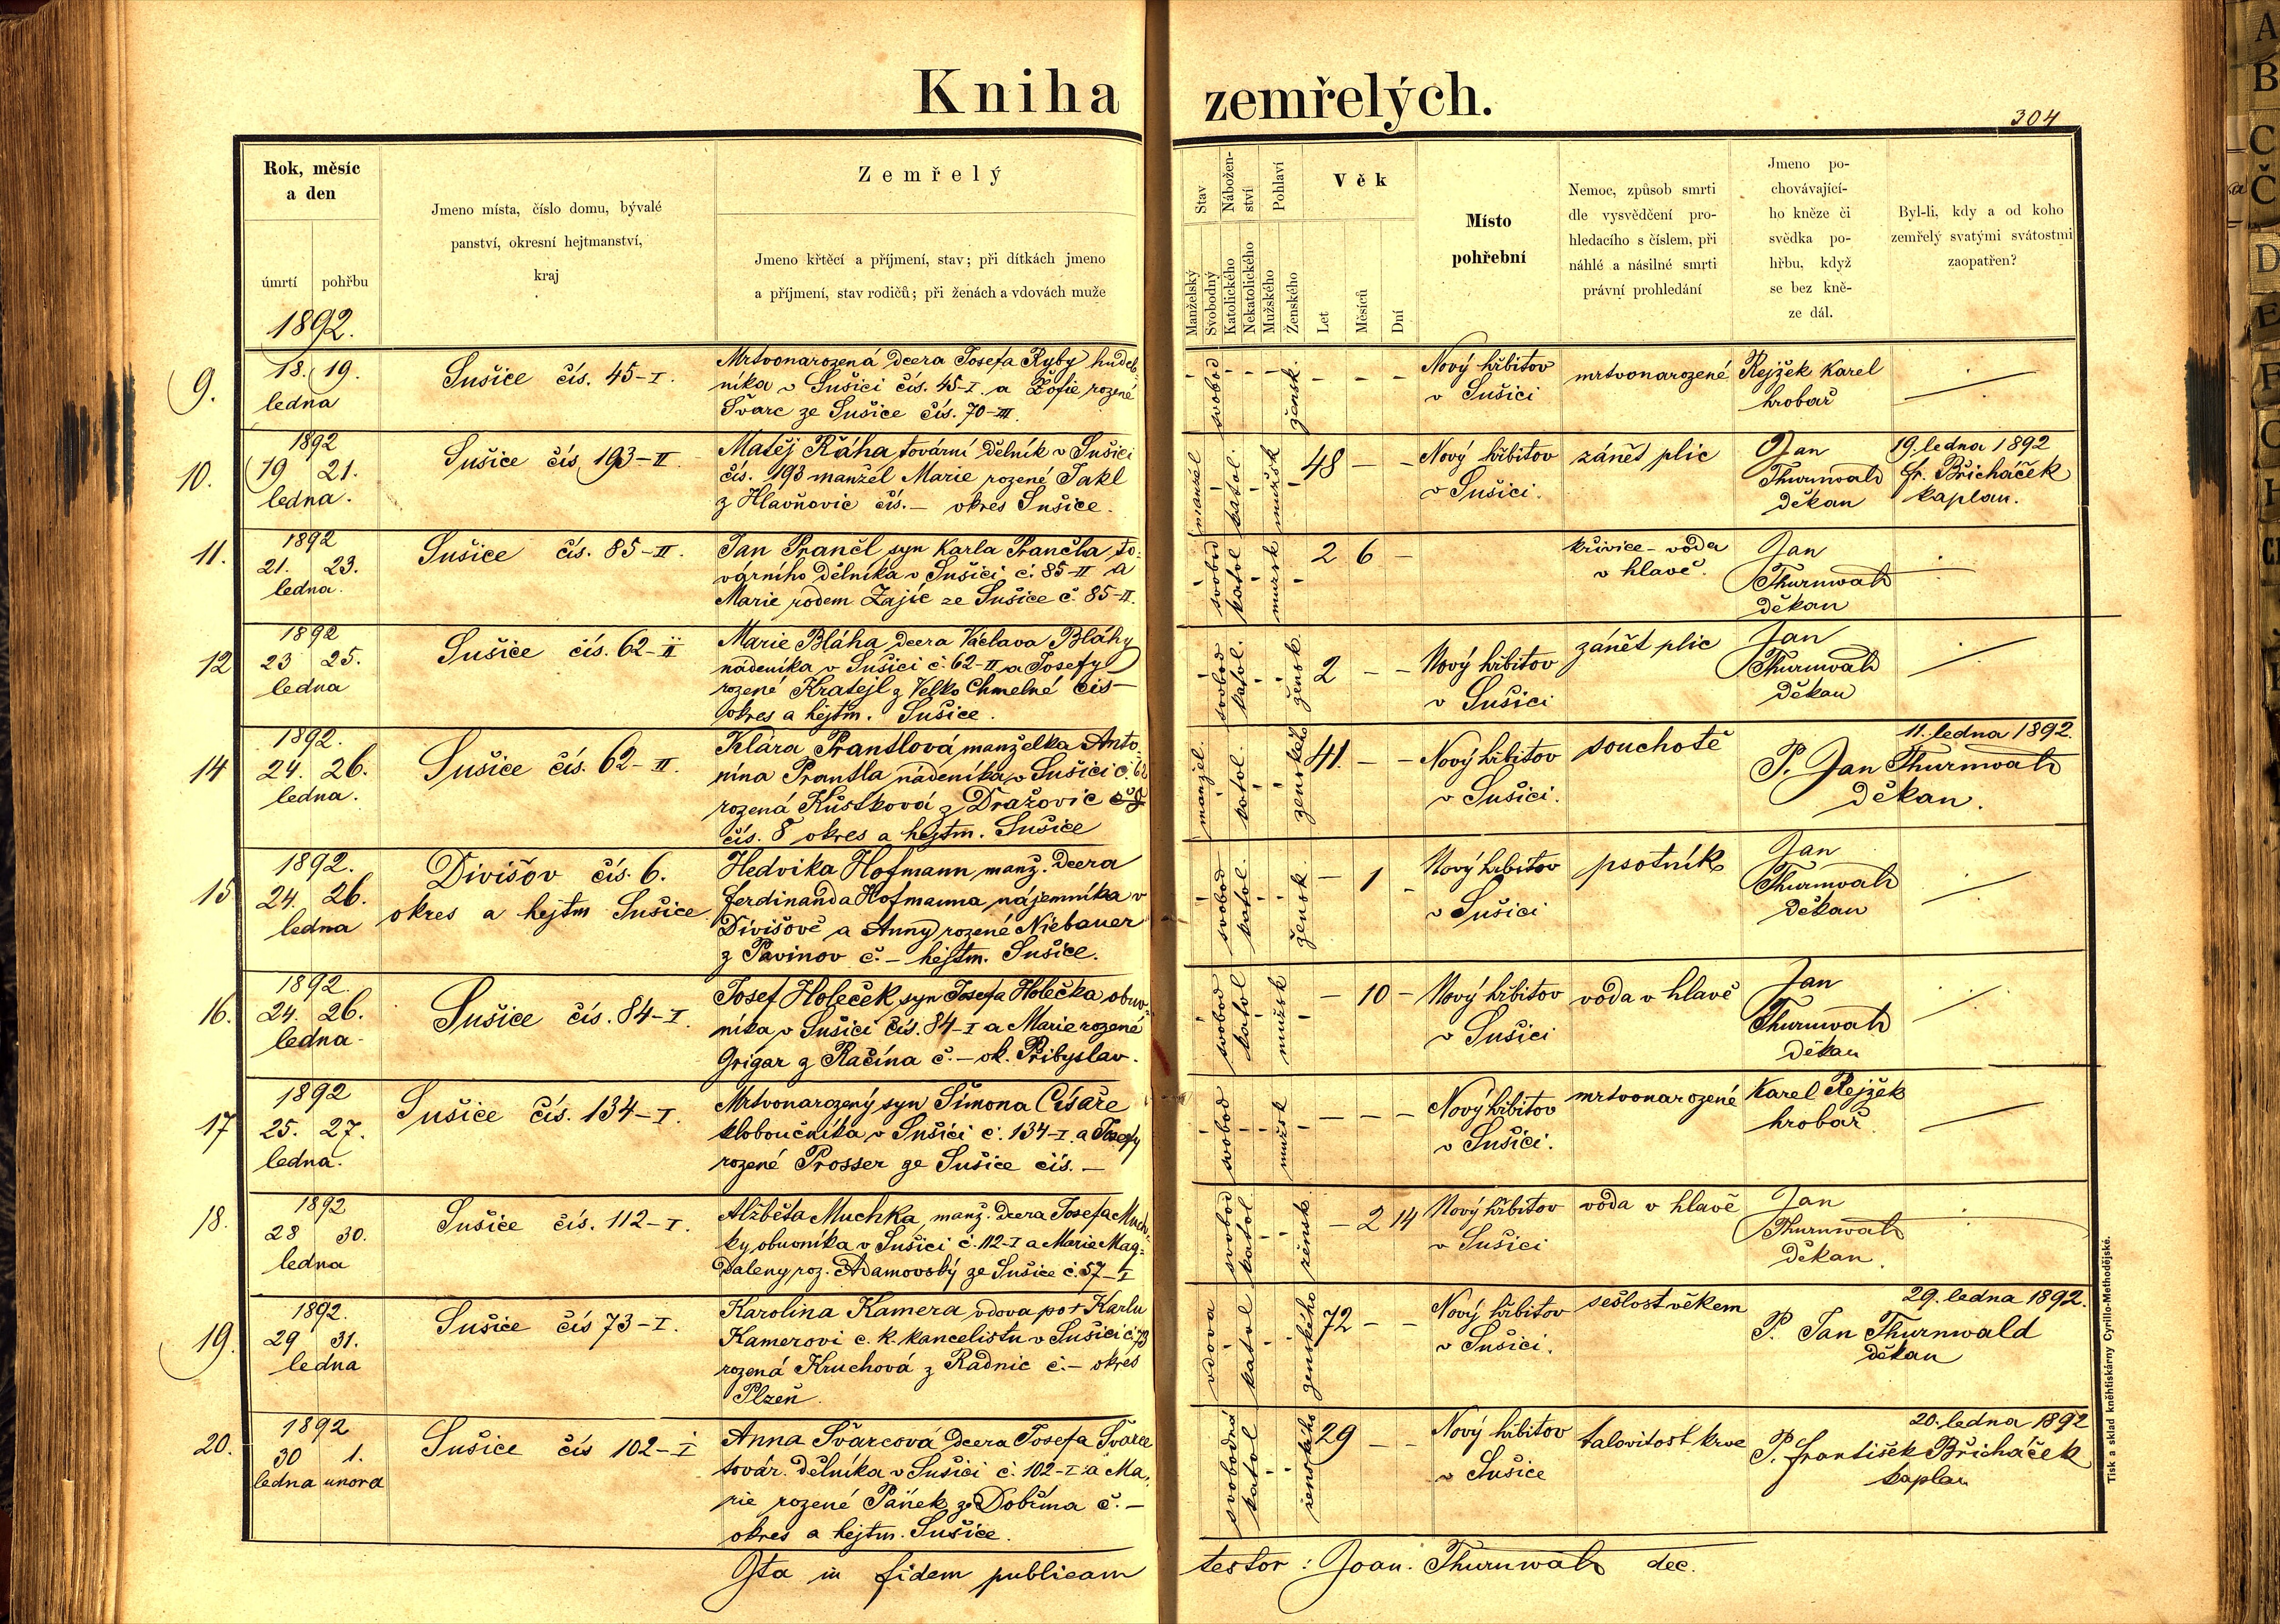 Kniha zemřelých.
304
Rok, měsíc
a den
úmrtí pohřbu
1892.
Jmeno místa, číslo domu, bývalé
panství, okresní hejtmanství,
kraj
Zemřelý
Jmeno křtěcí a příjmení, stav; při dítkách jmeno
a příjmení, stav rodičů; při ženách a vdovách muže
Stav
Manželský
Svobodný
Nábožen-
ství
Katolického
Nekatolického
Pohlaví
Mužského
Ženského
Věk
Let
Měsíců
Dní
Místo
pohřební
Nemoc, způsob smrti
dle vysvědčení pro-
hledacího s číslem, při
náhlé a násilné smrti
právní prohledání
Jmeno po-
chovávající-
ho kněze či
svědka po-
hřbu, když
se bez kně-
ze dál.
Byl-li, kdy a od koho
zemřelý svatými svátostmi
zaopatřen?
9.
18. 19.
ledna
Sušice čís. 45-I.
Mrtvonarozená dcera Josefa Ryby hudeb-
níka v Sušici čís. 45-I. a Žofie rozené
Švarc ze Sušice čís. 70-III.
svobod
žensk.
- - -
Nový hřbitov
v Sušici
mrtvonarozené
Rejžek Karel
hrobař
10.
1892
19 21.
ledna.
Sušice čís 193-II.
Matěj Řáha tovární dělník v Sušici
čís. 193 manžel Marie rozené Jakl
z Hlavňovic čís. – okres Sušice.
manžel
katol.
mužsk
48 - -
Nový hřbitov
v Sušici.
zánět plic
Jan
Thurnwald
děkan
19. ledna 1892
Fr. Břicháček
kaplan.
11.
1892
21. 23.
ledna.
Sušice čís. 85-II.
Jan Prančl syn Karla Prančla to-
várního dělníka v Sušici č. 85-II a
Marie rodem Zajíc ze Sušice č. 85-II.
svobod
katol
mužsk
2 6 -
křivice - voda
v hlavě.
Jan
Thurnwald
děkan
12
1892
23 25.
ledna
Sušice čís. 62-II
Marie Bláha dcera Václava Bláhy
nádeníka v Sušici č. 62-II a Josefy
rozené Kratejl z Velko Chmelné čís –
okres a hejtm. Sušice.
svobod
katol.
žensk.
2 - -
Nový hřbitov
v Sušici
zánět plic
Jan
Thurnwald
děkan
14
1892.
24. 26.
ledna.
Sušice čís. 62-II.
Klára Prantlová manželka Anto-
nína Prantla nádeníka v Sušici č. 62
rozená Kůstková z Dražovic
čís. 8 okres a hejtm. Sušice
manžel.
katol.
ženského
41. - -
Nový hřbitov
v Sušici.
souchotě
11. ledna 1892.
P. Jan Thurnwald
děkan.
15
1892.
24. 26.
ledna
Divišov čís. 6.
okres a hejtm Sušice
Hedvika Hofmann manž. dcera
Ferdinanda Hofmanna nájemníka v
Divišově a Anny rozené Niebauer
z Pavinov č. – hejtm. Sušice.
svobod
katol.
žensk
- 1 -
Nový hřbitov
v Sušici
psotník
Jan
Thurnwald
děkan
16.
1892.
24. 26.
ledna
Sušice čís. 84-I.
Josef Holeček syn Josefa Holečka obuv-
níka v Sušici čís. 84-I a Marie rozené
Grigar z Račína č. – ok. Přibyslav.
svobod
katol
mužsk
- 10 -
Nový hřbitov
v Sušici
voda v hlavě
Jan
Thurnwald
děkan
17
1892
25. 27.
ledna.
Sušice čís. 134-I.
Mrtvonarozený syn Šimona Císaře
kloboučníka v Sušici č. 134-I. a Josefy
rozené Prosser ze Sušice čís. –
svobod
mužsk
- - -
Nový hřbitov
v Sušici.
mrtvonarozené
Karel Rejžek
hrobař
18.
1892
28 30.
ledna
Sušice čís. 112-I.
Alžběta Muchka, manž. dcera Josefa Much-
ky obuvníka v Sušici č. 112-I a Marie Mag-
daleny roz. Adamovský ze Sušice č. 57-I
svobod
katol.
žensk.
- 2 14
Nový hřbitov
v Sušici
voda v hlavě
Jan
Thurnwald
děkan.
19.
1892.
29 31.
ledna
Sušice čís 73-I.
Karolina Kamera vdova po † Karlu
Kamerovi c. k. kancelistu v Sušici č. 73
rozená Kruchová z Radnic č. – okres
Plzeň.
vdova
katol
ženského
72 - -
Nový hřbitov
v Sušici.
sešlost věkem
29. ledna 1892.
P. Jan Thurnwald
děkan
20.
1892
30 1.
ledna unora
Sušice čís 102-I
Anna Švarcová dcera Josefa Švarce
továr. dělníka v Sušici č. 102-I. a Ma-
rie rozené Pánek z Dobřína č. –
okres a hejtm. Sušice.
svobodná
katol
ženského
29 - -
Nový hřbitov
v Sušice
talovitost krve
20. ledna 1892
P. František Břicháček
kaplan
Ita in fidem publicam testor: Joan. Thurnwald dec.
Tisk a sklad knéhtiskárny Cyrillo-Methodějské.
A
B
C
Č
D
E
F